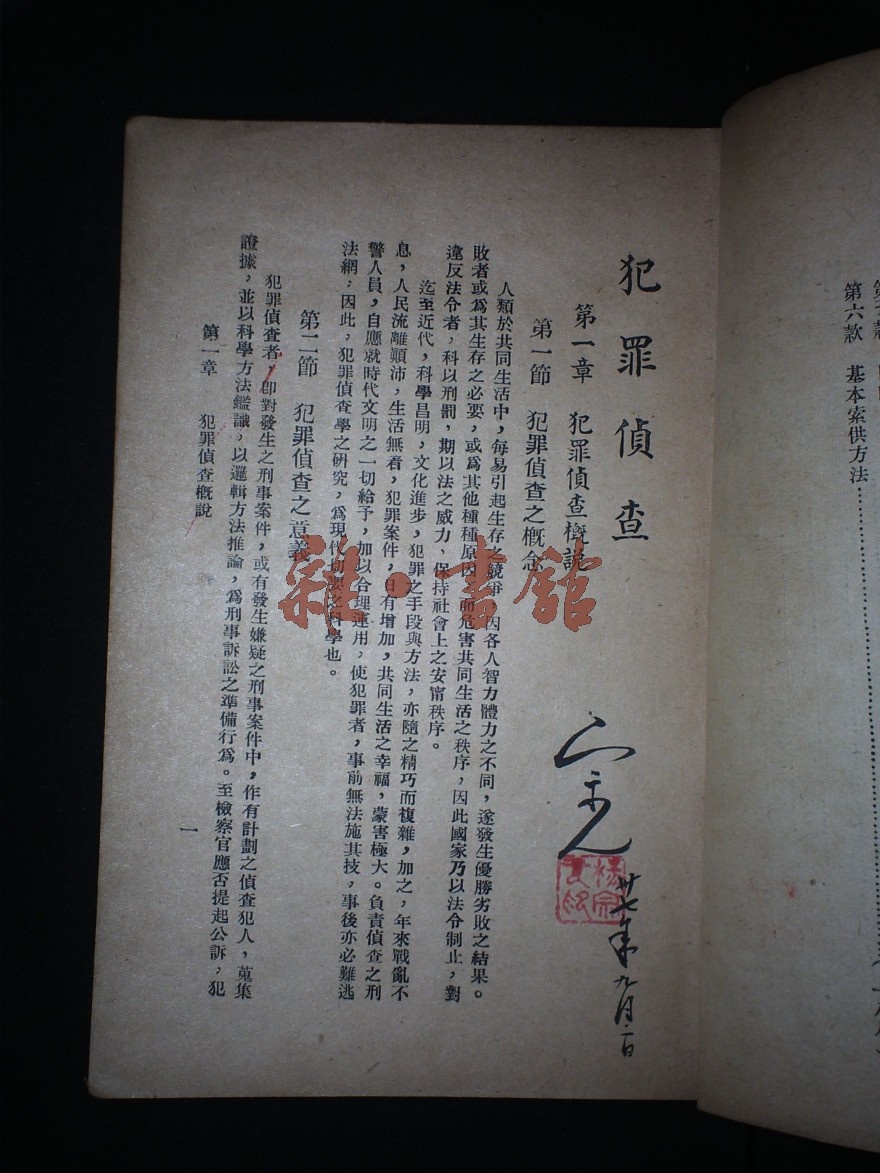 第六款　基本索供方法
犯罪偵查
第一章　犯罪偵查概說
第一節　犯罪偵查之概念
人類於共同生活中，每易引起生存之競爭，因各人智力體力之不同，遂發生優勝劣敗之結果。
敗者或爲其生存之必要，或爲其他種種原因，而危害共同生活之秩序，因此國家乃以法令制止，對
違反法令者，科以刑罰，期以法之威力，保持社會上之安甯秩序。
迄至近代，科學昌明，文化進步，犯罪之手段與方法，亦隨之精巧而複雜，加之，年來戰亂不
息，人民流離顚沛，生活無着，犯罪案件，日有增加，共同生活之幸福，蒙害極大。負責偵查之刑
警人員，自應就時代文明之一切給予，加以合理運用，使犯罪者，事前無法施其技，事後亦必難逃
法網，因此，犯罪偵查學之研究，爲現代切要之科學也。
第二節　犯罪偵查之意義
犯罪偵查者，卽對發生之刑事案件，或有發生嫌疑之刑事案件中，作有計劃之偵查犯人，蒐集
證據，並以科學方法鑑識，以邏輯方法推論，爲刑事訴訟之準備行爲。至檢察官應否提起公訴，犯
第一章　犯罪偵查概說
一
廿七年九月一日
雜·書館